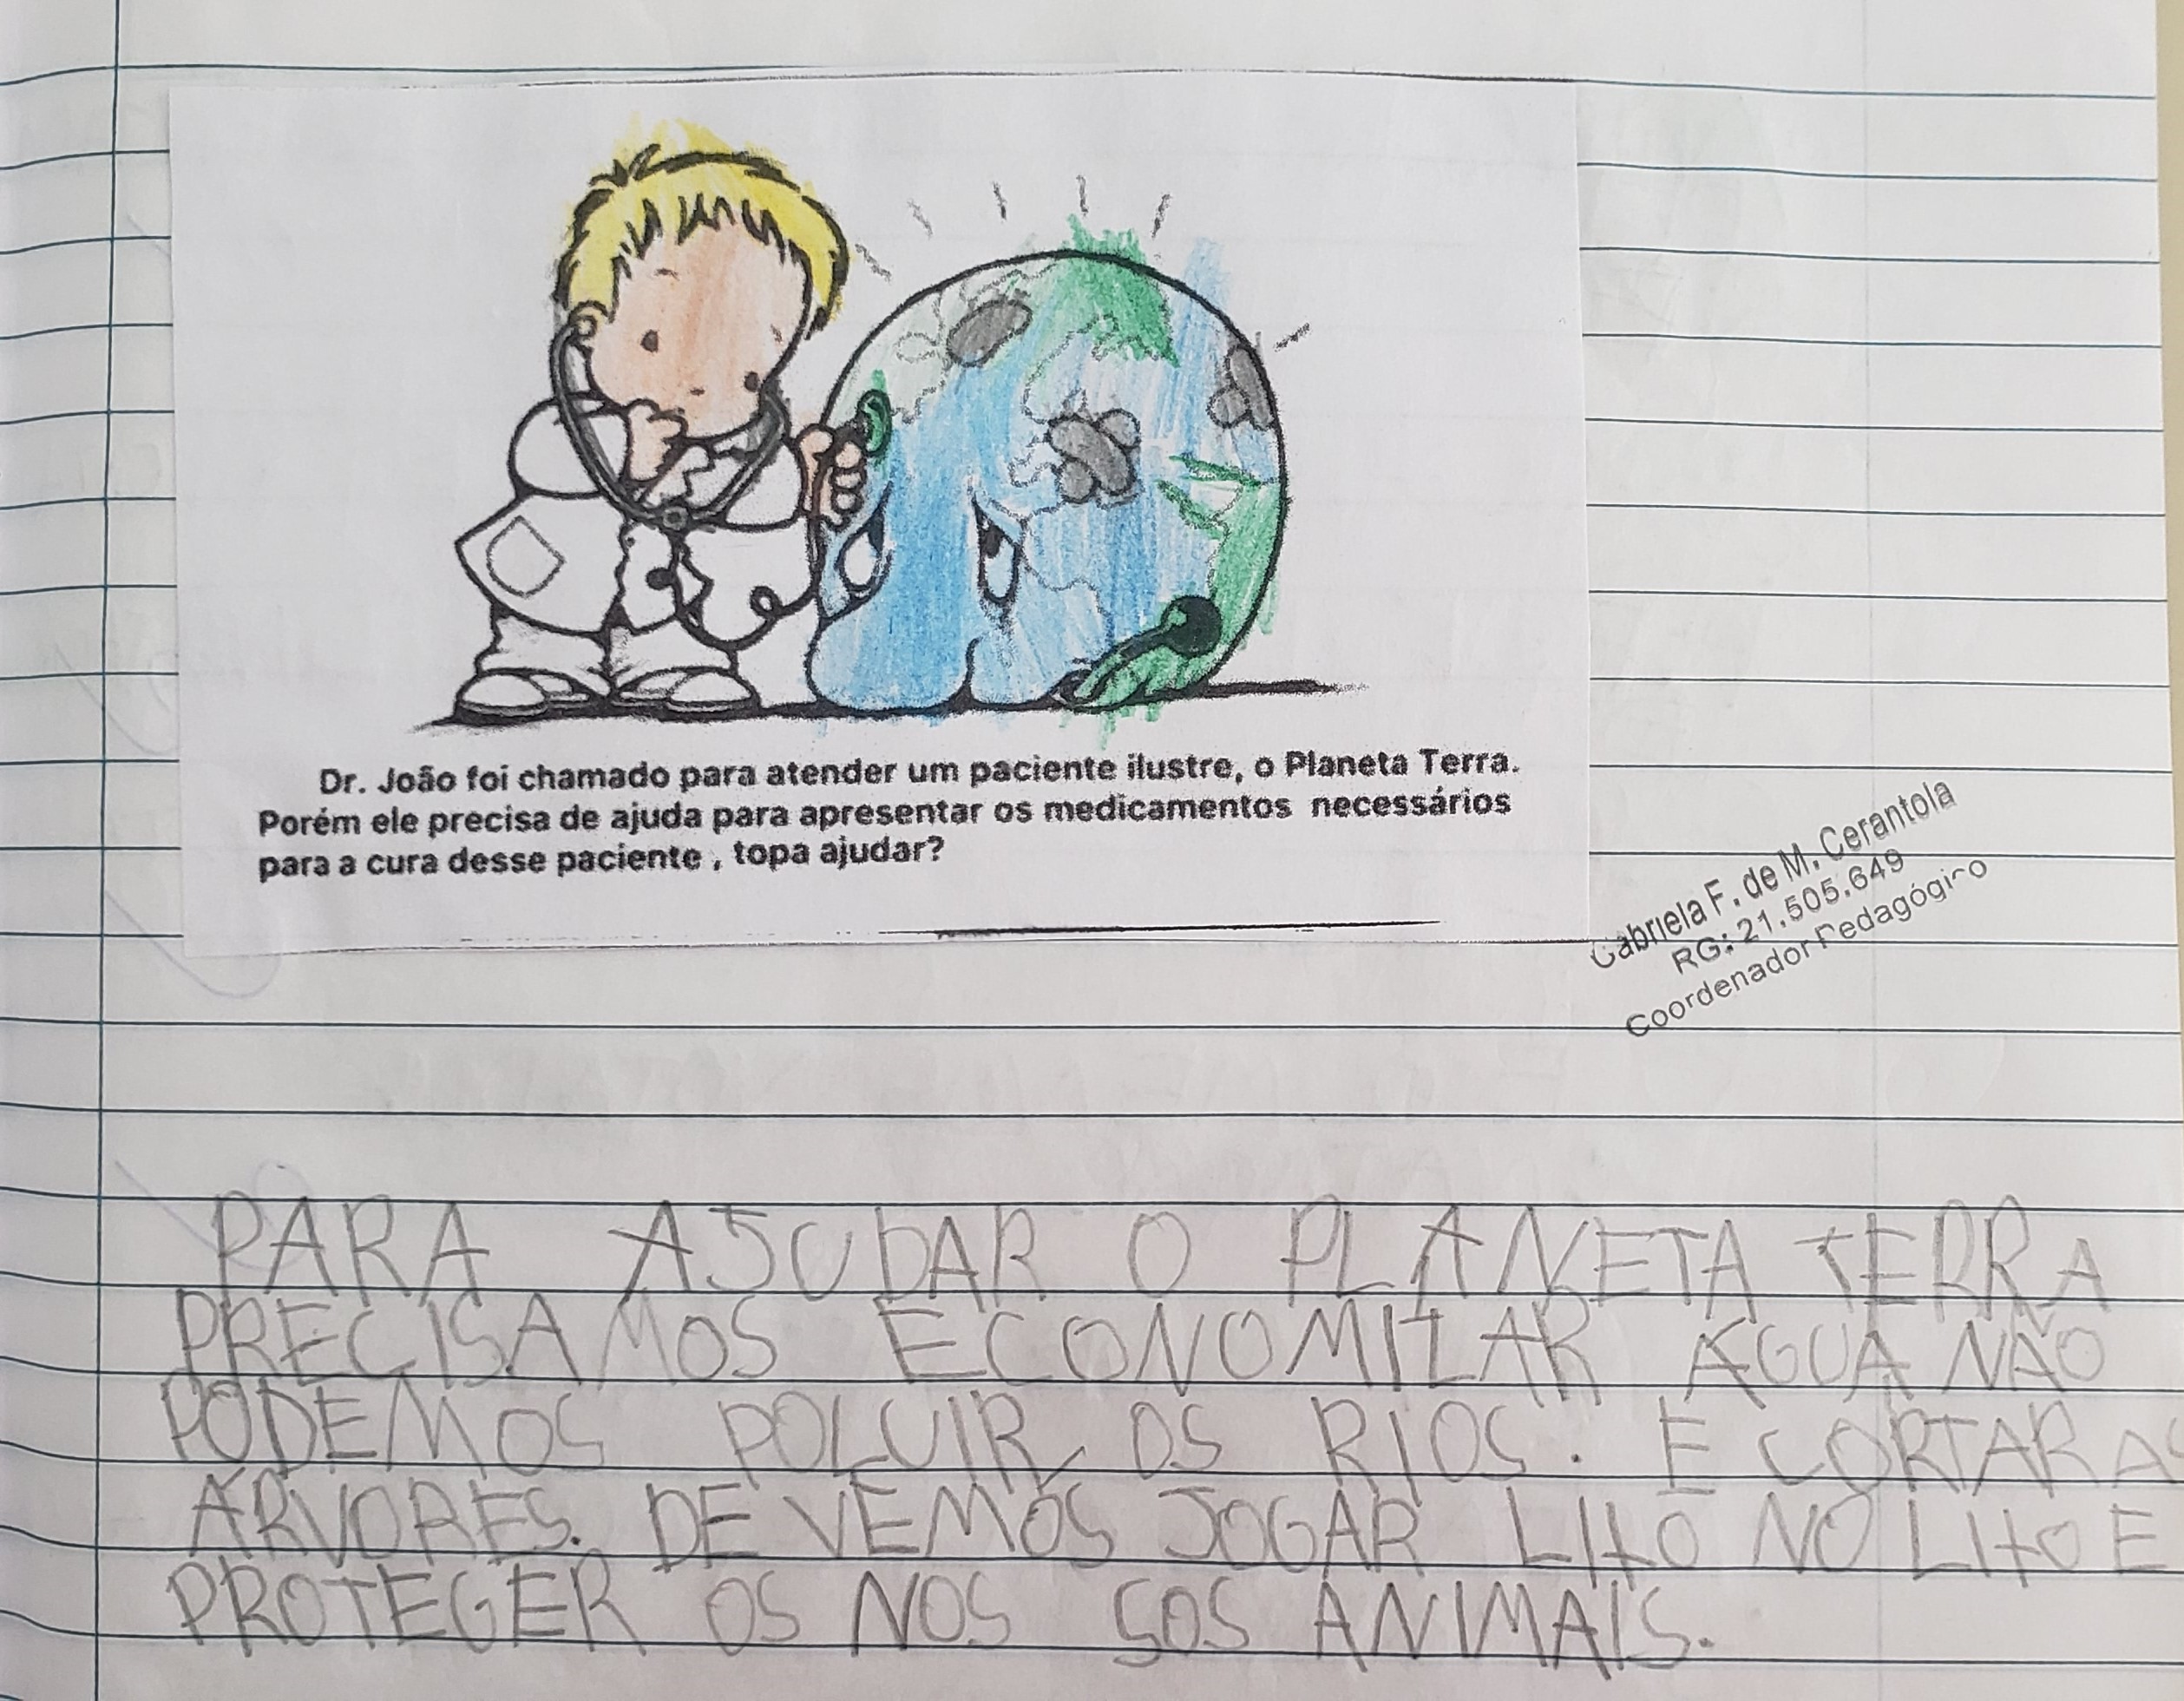 Dr. João foi chamado para atender um paciente ilustre, o Planeta Terra.
Porém ele precisa de ajuda para apresentar os medicamentos necessários
para a cura desse paciente , topa ajudar?
Gabriela F. de M. Cerantola
RG: 21.505.649
Coordenador Pedagógico
PARA AJUDAR O PLANETA TERRA
PRECISAMOS ECONOMIZAR ÁGUA NÃO
PODEMOS POLUIR OS RIOS. E CORTAR AS
ÁRVORES. DE VEMOS JOGAR LIXO NO LIXO E
PROTEGER OS NOS SOS ANIMAIS.